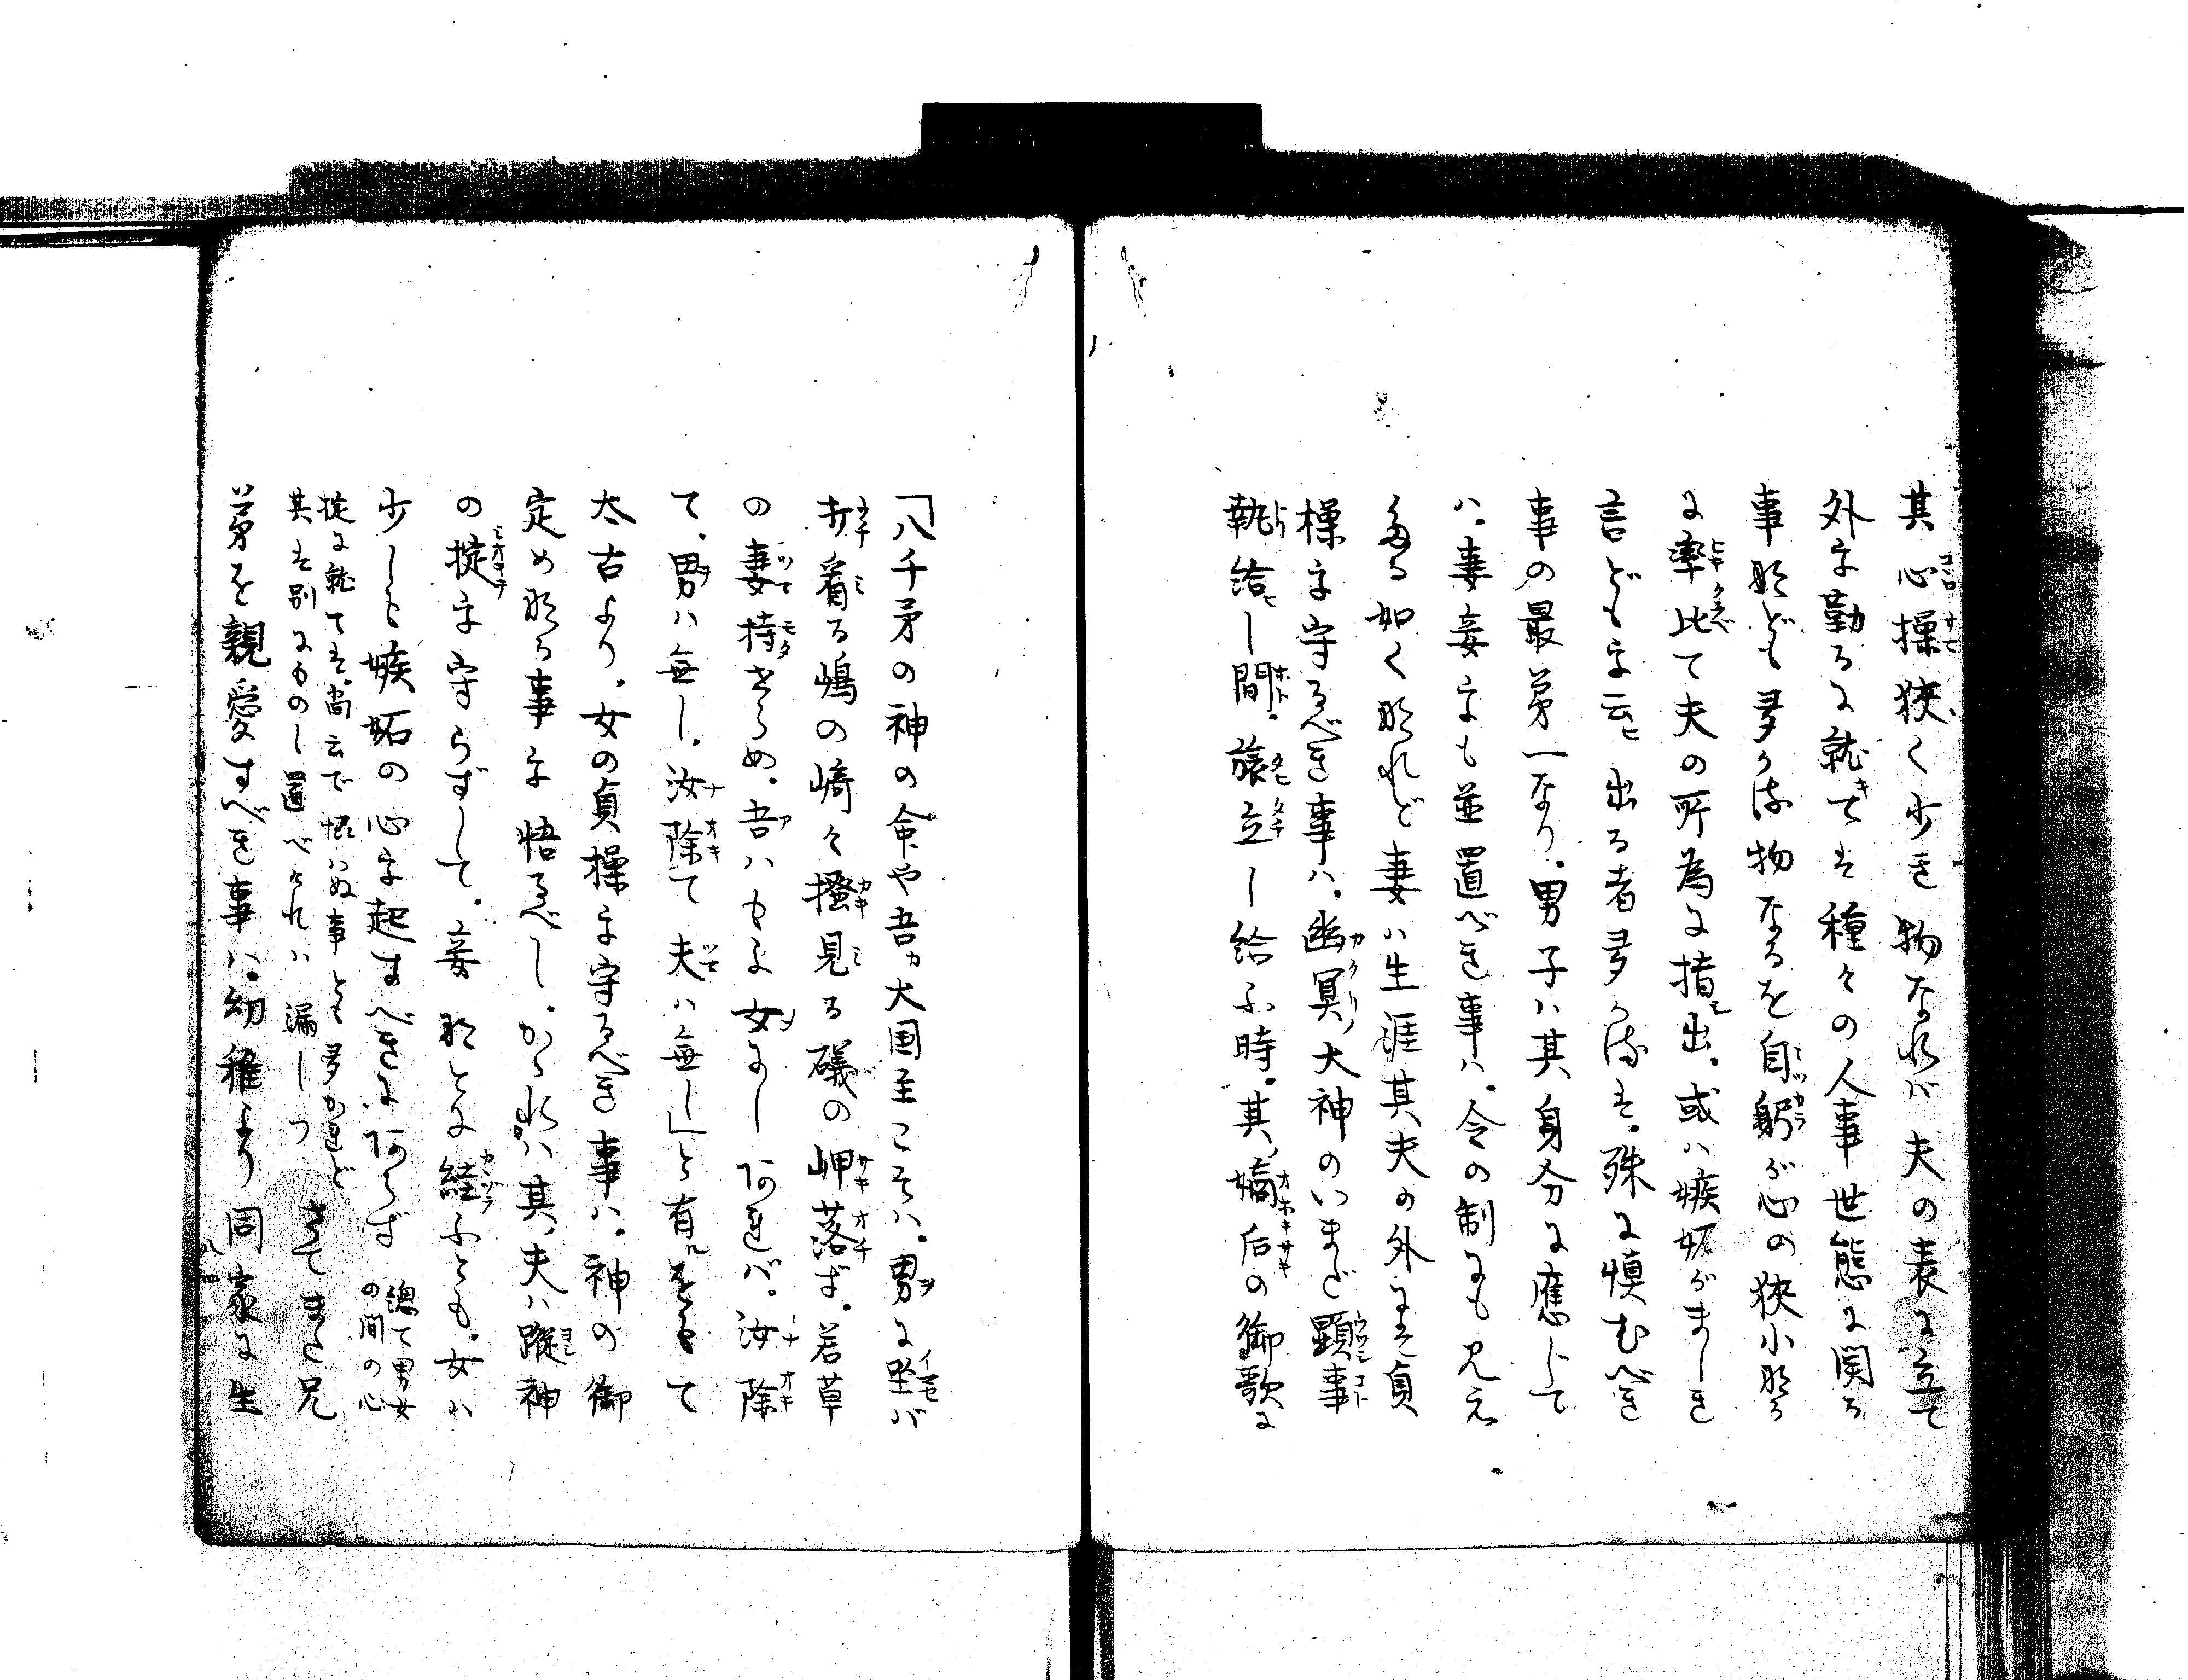 其心操狭く少き物なれば夫の表に立て
外を勤るに就きては種々の人事世態に関る
事なども多かる物なるを自躬が心の狭小なる
に率比て夫の所為に揩出。或ハ嫉妬がましき
言どもを云ヒ出る者多かるは。殊に慎むべき
事の最第一なり。男子ハ其身分に應じて
ハ。妻妾をも並置べき事ハ。令の制にも見え
たる如くなれど妻ハ生涯其夫の外なき貞
操を守るべき事ハ。幽冥ノ大神のいまだ顕事
執給ヒし間。旅立し給ふ時。其ノ嫡后の御歌に
「八千矛の神の命や吾ガ大国主こそハ。男に坐バ
打着る嶋の崎々掻見る礒の岬落ず。若草
の妻持せらめ。吾ハもよ女にしあれバ。汝除
て。男ハ無し。汝除て夫ハ無し」と有ルをもて
太古より。女の貞操を守るべき事ハ。神の御
定めなる事を悟るべし。かゝれハ其ノ夫ハ縦神
の掟を守らずして。妾などに絓ふとも。女ハ
少しも嫉妬の心を起すべきにあらず 總て男女の間の心
掟に就ては。尚云で慊ハぬ事とも多かれど
其は別にものし置べけれハ漏しつ さてまた兄
弟を親愛すべき事ハ。幼稚より同家に生